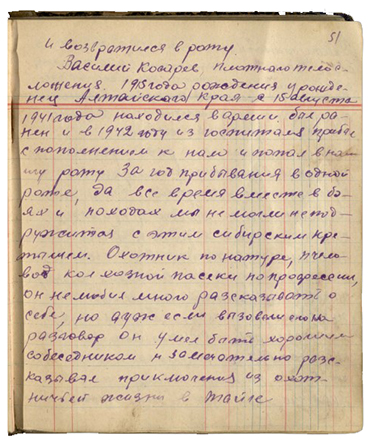 51
и возвратился в роту
Василий Косарев, плотного телос-
ложения. 1915 года рождения урожде-
нец Алтайского края с 15 августа
1941 года находился в армии, был ра
нен и в 1942 году из госпиталя прибыл
с пополнением к нам и попал в на
шу роту За год прибывания в одной
роте, да все время вместе в бо-
ях и походах мы не могли не под-
ружиться с этим сибирским кре
Охотник по натуре, пчело-
вод колхозной пасеки по профессии,
он не любил много рассказывать о
себе, но
разговор он умел быть хорошим
собеседником и замечательно расс-
казывал приключения из охот-
ничьей жизни в тайге